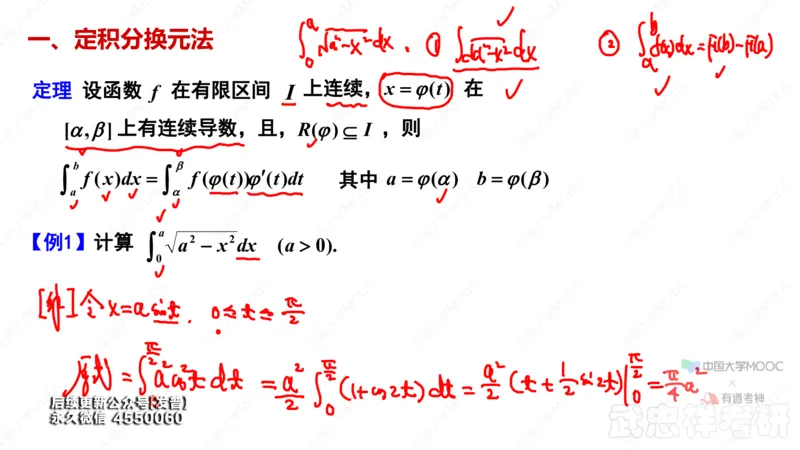 一、定积分换元法
∫₀ᵃ √(a²−x²) dx . ① ∫√(a²−x²) dx ② ∫ₐᵇ f(x)dx = F(b)−F(a)
定理 设函数 f 在有限区间 I 上连续，x = φ(t) 在
[α,β]上有连续导数，且，R(φ) ⊆ I ，则
∫ₐᵇ f(x)dx = ∫_α^β f(φ(t))φ′(t)dt 其中 a = φ(α) b = φ(β)
【例1】计算 ∫₀ᵃ √(a² − x²) dx (a > 0).
[解] 令 x = a sin t . 0 ≤ t ≤ π/2
原式 = ∫₀^(π/2) a² cos² t dt = a²/2 ∫₀^(π/2) (1+cos2t) dt = a²/2 (t + 1/2 sin2t)|₀^(π/2) = π/4 a²
中国大学MOOC
×
有道考神
后续更新公众号(发普)
永久微信 4550060
武忠祥考研